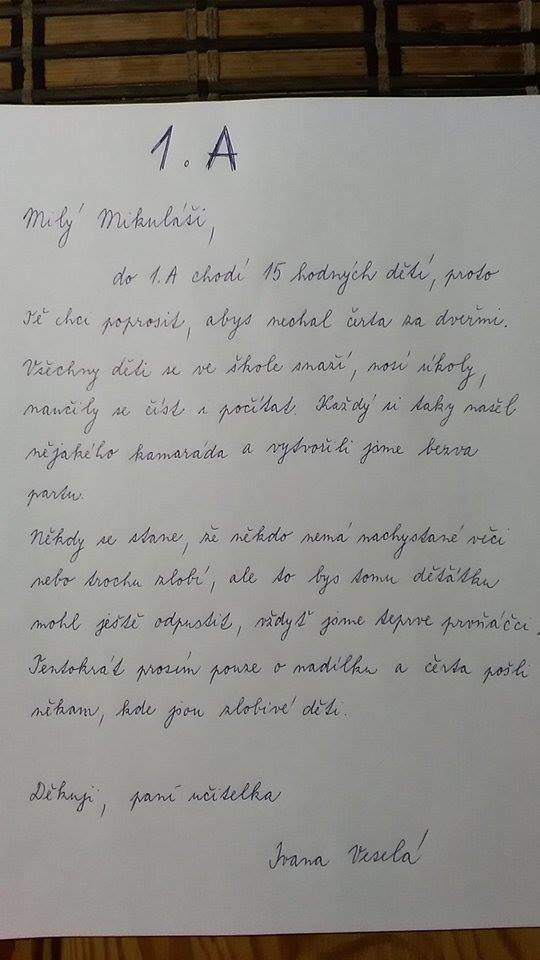 1. A
Milý Mikuláši,
do 1.A chodí 15 hodných dětí, proto
Tě chci poprosit, abys nechal čerta za dveřmi.
Všechny děti se ve škole snaží, nosí úkoly,
naučily se číst i počítat. Každý si taky našel
nějakého kamaráda a vytvořili jsme bezva
partu.
Někdy se stane, že někdo nemá nachystané věci
nebo trochu zlobí, ale to bys tomu děťátku
mohl ještě odpustit, vždyť jsme teprve prvňáčci.
Tentokrát prosím pouze o nadílku a čerta pošli
někam, kde jsou zlobivé děti.
Děkuji, paní učitelka
Ivana Veselá